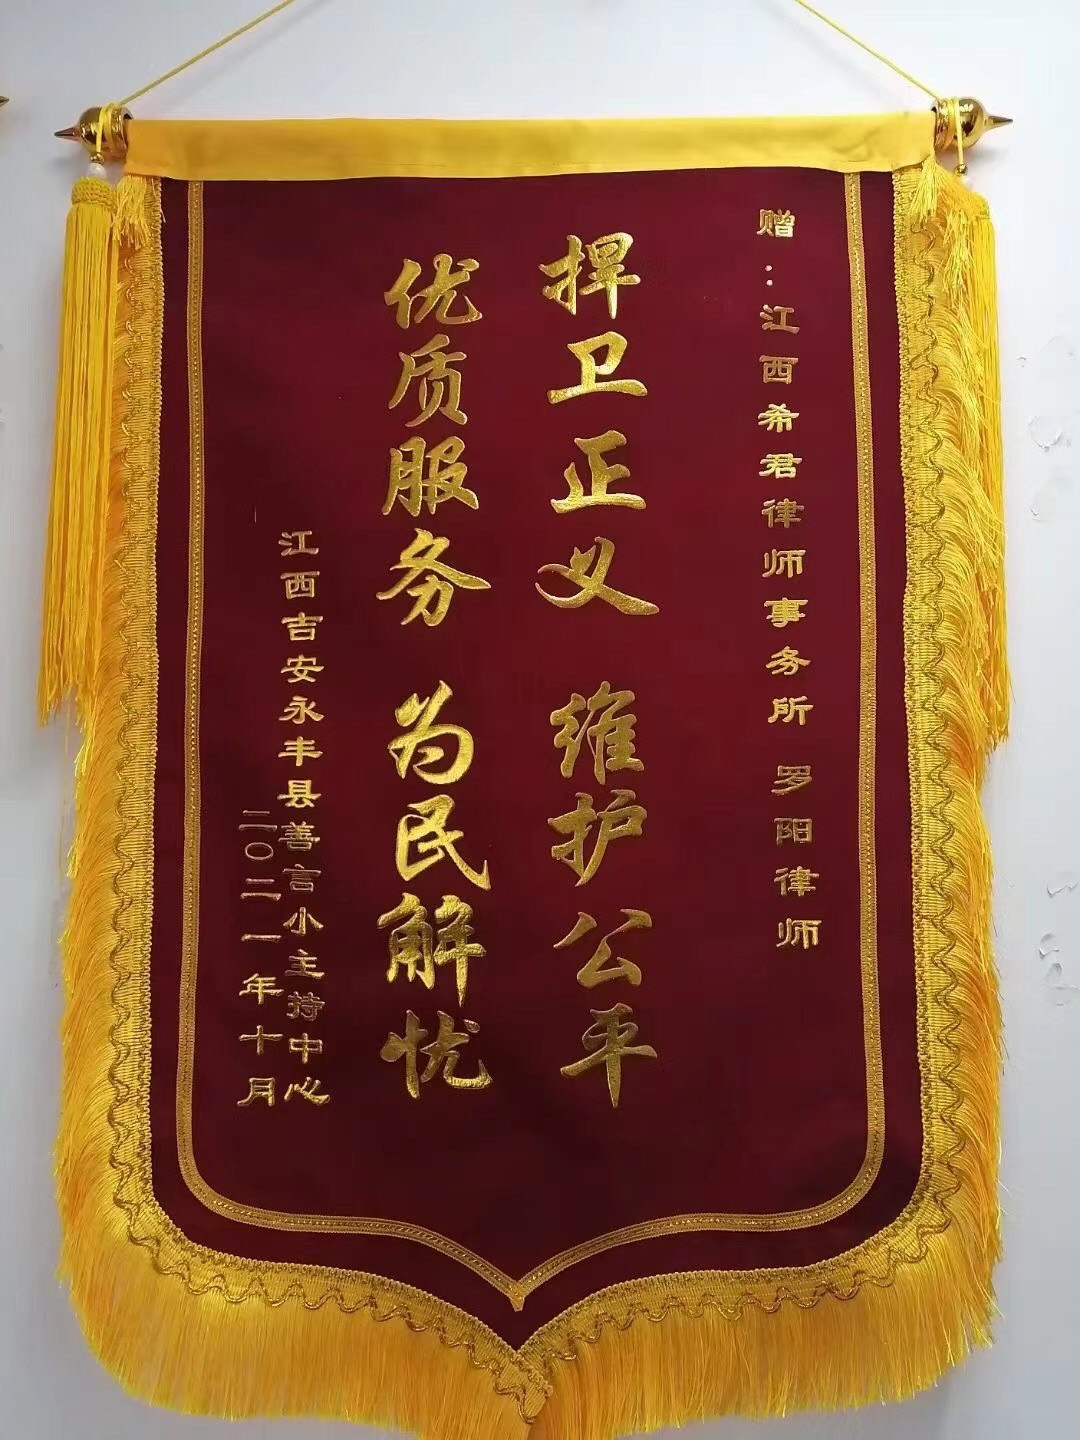 赠：江西希君律师事务所 罗阳律师
捍卫正义 维护公平
优质服务 为民解忧
江西吉安永丰县善言小主持中心
二〇二一年十月